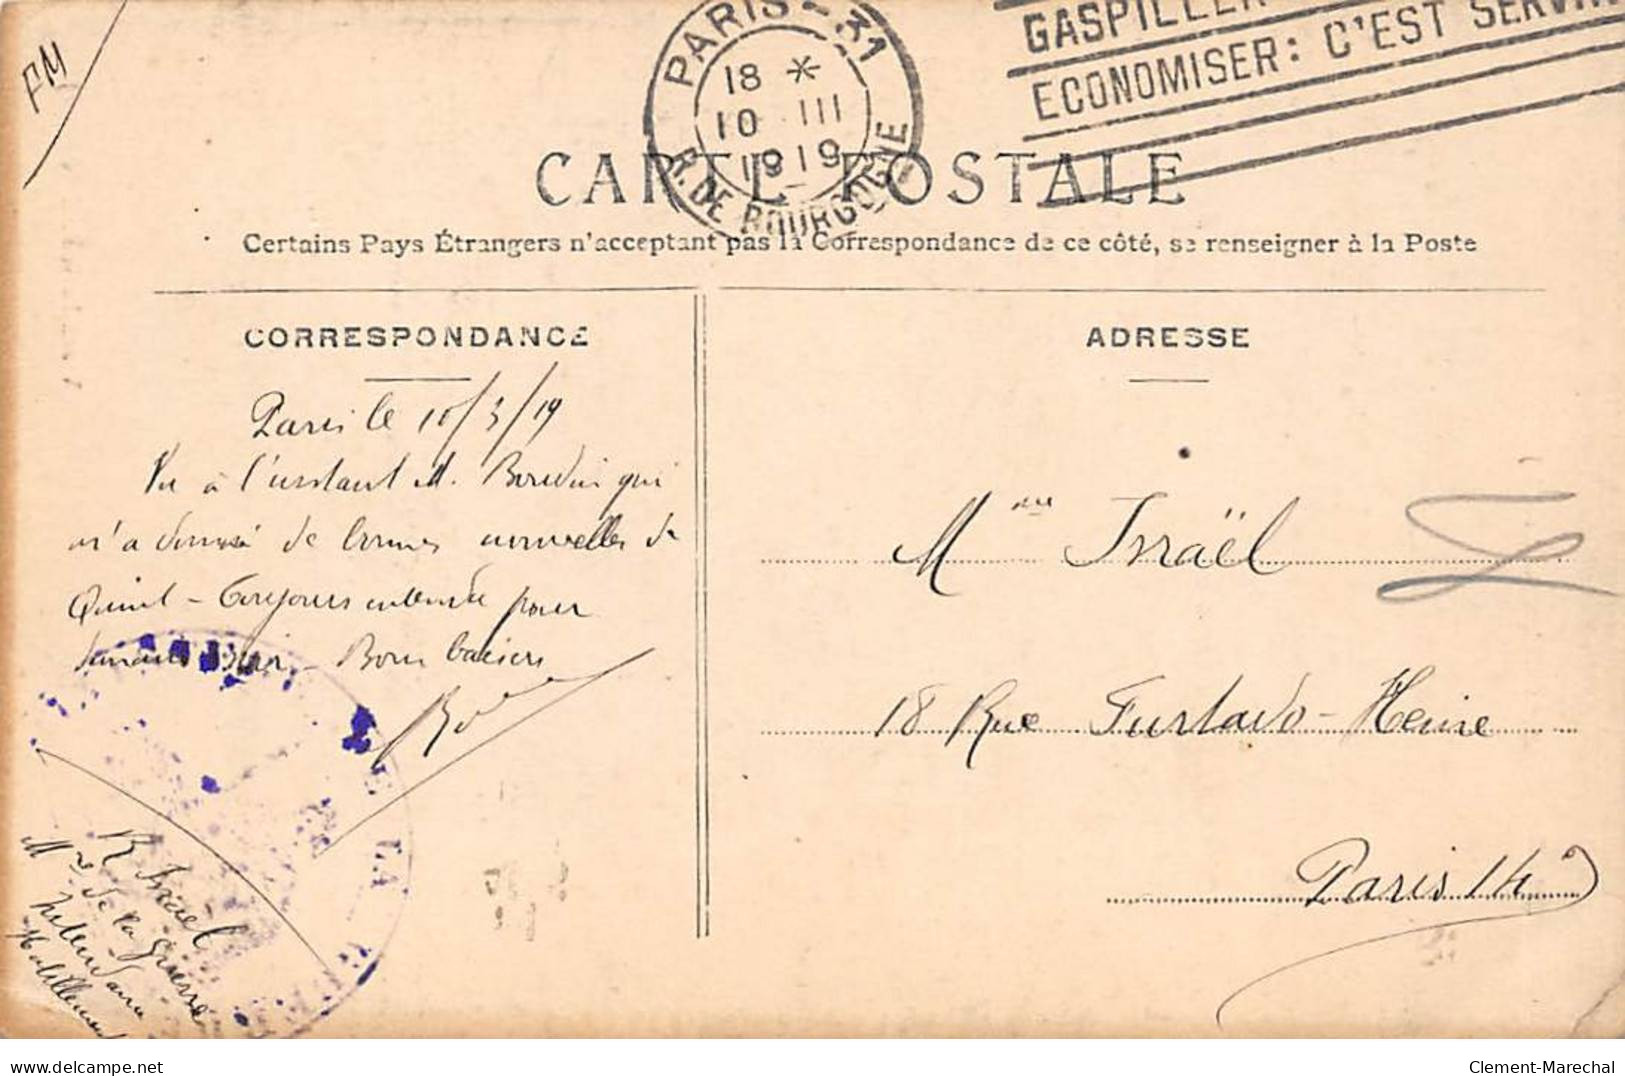 FM
PARIS - 31
18 *
10 III
1919
R. DE BOURGOGNE
GASPILLER
ECONOMISER: C'EST SERVIR
CARTE POSTALE
Certains Pays Étrangers n'acceptant pas la Correspondance de ce côté, se renseigner à la Poste
CORRESPONDANCE
ADRESSE
Paris le 10/3/19
Vu à l'instant M. Boudin qui
m'a donné de bonnes nouvelles de
Quint - Toujours entendu pour
demain soir - Bons baisers
R Israel
Mre de la guerre
Intendance
Habillement
Mme Israël
18 Rue Furtado-Heine
Paris 14e
Clement-Marechal